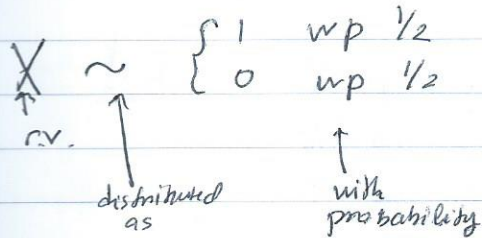 X ~ { 1 wp 1/2
0 wp 1/2
r.v.
distributed
as
with
probability